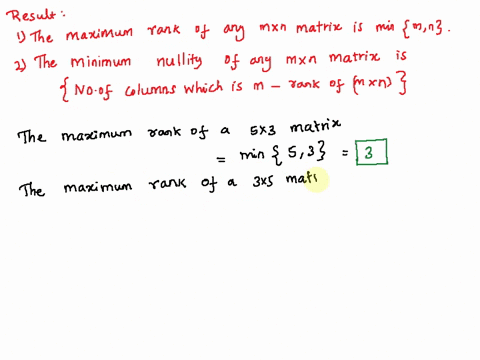 Result:
1) The maximum rank of any m×n matrix is min {m,n}.
2) The minimum nullity of any m×n matrix is
{ No.of columns which is m - rank of (m×n) }
The maximum rank of a 5×3 matrix
= min { 5,3 } = 3
The maximum rank of a 3×5 mati